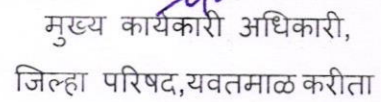 मुख्य कार्यकारी अधिकारी,
जिल्हा परिषद,यवतमाळ करीता